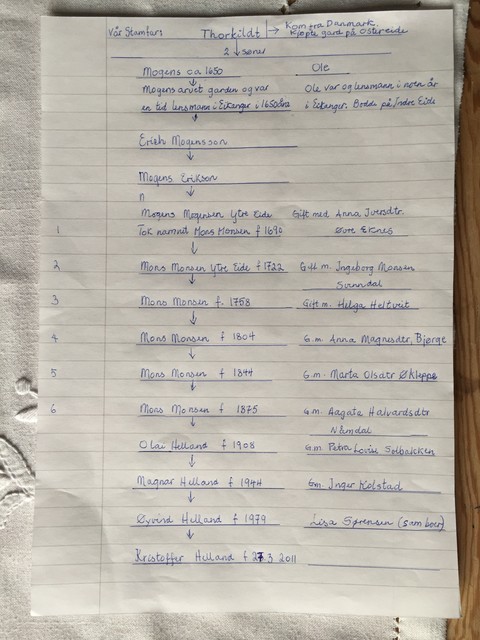 Vår Stamfar: Thorkildt → Kom fra Danmark.
Kjøpte gard på Østereide
2 sønner
Mogens ca 1650 Ole
Mogens arvet garden og var Ole var og lensmann i noen år
en tid lensmann i Eikanger i 1650åra i Eikanger. Bodde på Indre Eide
Erich Mogensson
Mogens Erikson
n
Mogens Mogensen Ytre Eide Gift med Anna Iversdtr.
1 Tok namnit Mons Monsen f 1690 Øvre Eknes
2 Mons Monsen Ytre Eide f 1722 Gift m. Ingeborg Monsen
Svenndal
3 Mons Monsen f. 1758 Gift m. Helga Heltveit
4 Mons Monsen f 1804 G.m. Anna Magnesdtr, Bjørge
5 Mons Monsen f 1844 G.m. Marta Olsdtr Økleppe
6 Mons Monsen f 1875 G.m. Aagate Halvardsdtr
Nåmdal
Olai Helland f 1908 G.m Petra Lovise Solbakken
Magnar Helland f 1944 Gm. Inger Kolstad
Øyvind Helland f 1979 Lisa Sørensen (samboer)
Kristoffer Helland f 27.3 2011